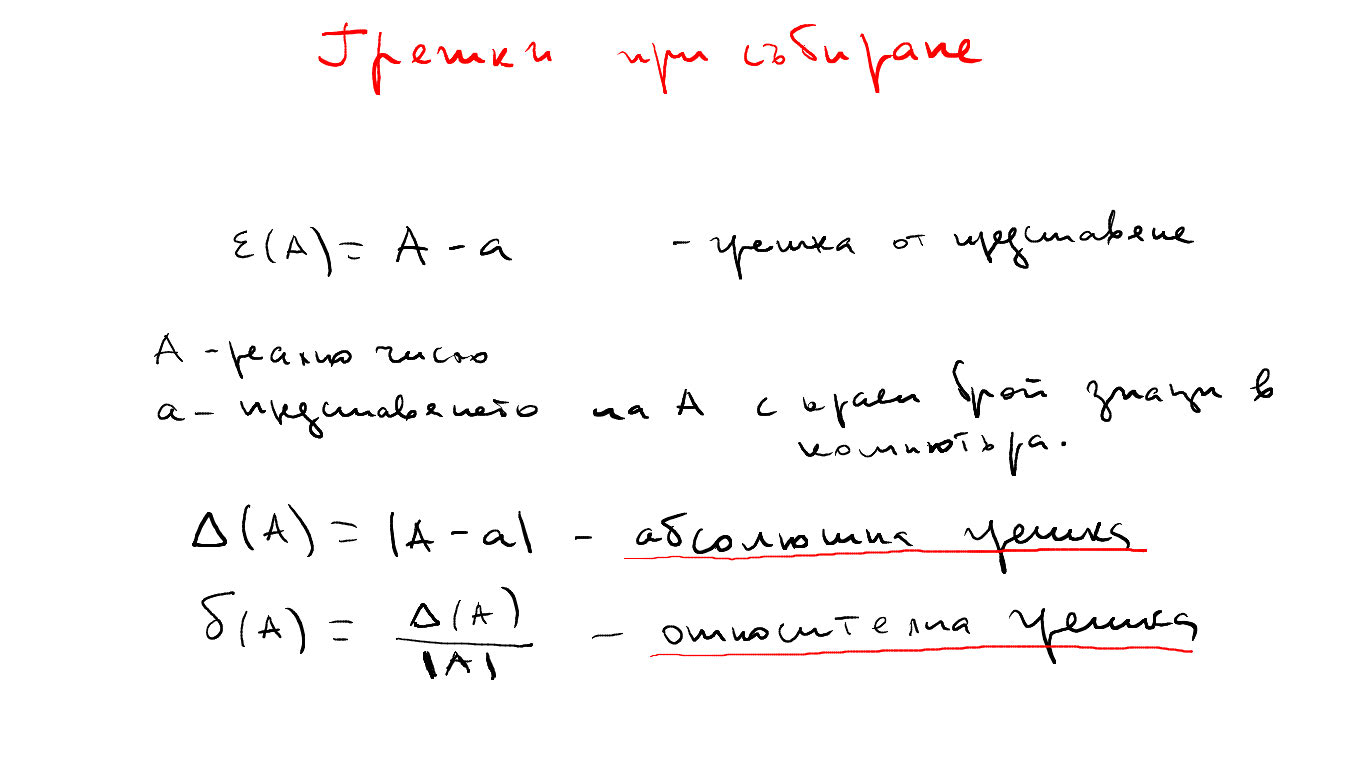 Грешки при събиране
ε(A) = A - a - грешка от представяне
A - реално число
a - представянето на A с краен брой знаци в
компютъра.
Δ(A) = |A - a| - абсолютна грешка
δ(A) = Δ(A) / |A| - относителна грешка